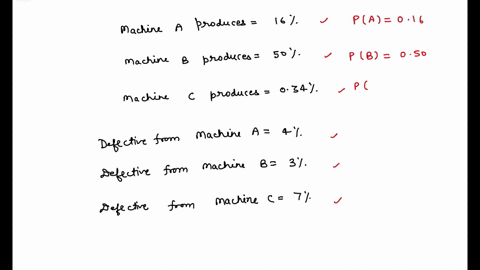 Machine A produces = 16% ✓ P(A) = 0.16
Machine B produces = 50% ✓ P(B) = 0.50
Machine C produces = 0.34% ✓ P(
Defective from Machine A = 4% ✓
Defective from Machine B = 3% ✓
Defective from Machine C = 7% ✓